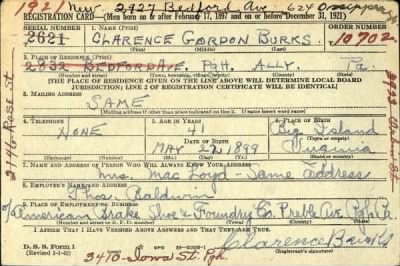 1921 New 2427 Bedford Ave.
REGISTRATION CARD—(Men born on or after February 17, 1897 and on or before December 31, 1921)
SERIAL NUMBER 1. NAME (Print) ORDER NUMBER
2621 CLARENCE GORDON BURKS 10702
2. PLACE OF RESIDENCE (Print)
2832 BEDFORD AVE. PGH. ALLY. Pa.
(Number and street) (Town, township, village, or city) (County) (State)
[THE PLACE OF RESIDENCE GIVEN ON THE LINE ABOVE WILL DETERMINE LOCAL BOARD
JURISDICTION; LINE 2 OF REGISTRATION CERTIFICATE WILL BE IDENTICAL]
3. MAILING ADDRESS
SAME
(Mailing address if other than place indicated on line 2. If same insert word same)
4. TELEPHONE 5. AGE IN YEARS 6. PLACE OF BIRTH
NONE 41 Big Island
DATE OF BIRTH
MAY 22 1899 Virginia
7. NAME AND ADDRESS OF PERSON WHO WILL ALWAYS KNOW YOUR ADDRESS
Mrs. Mac Loyd - Same Address
8. EMPLOYER'S NAME AND ADDRESS
Thos. Baldwin
9. PLACE OF EMPLOYMENT OR BUSINESS
American Brake Shoe & Foundry Co. Preble Ave. Pgh. Pa.
I AFFIRM THAT I HAVE VERIFIED ABOVE ANSWERS AND THAT THEY ARE TRUE.
D. S. S. Form 1
(Revised
Clarence Burks
(Registrant's signature)
3470 - Iowa St. Pgh.
2146 Rose St